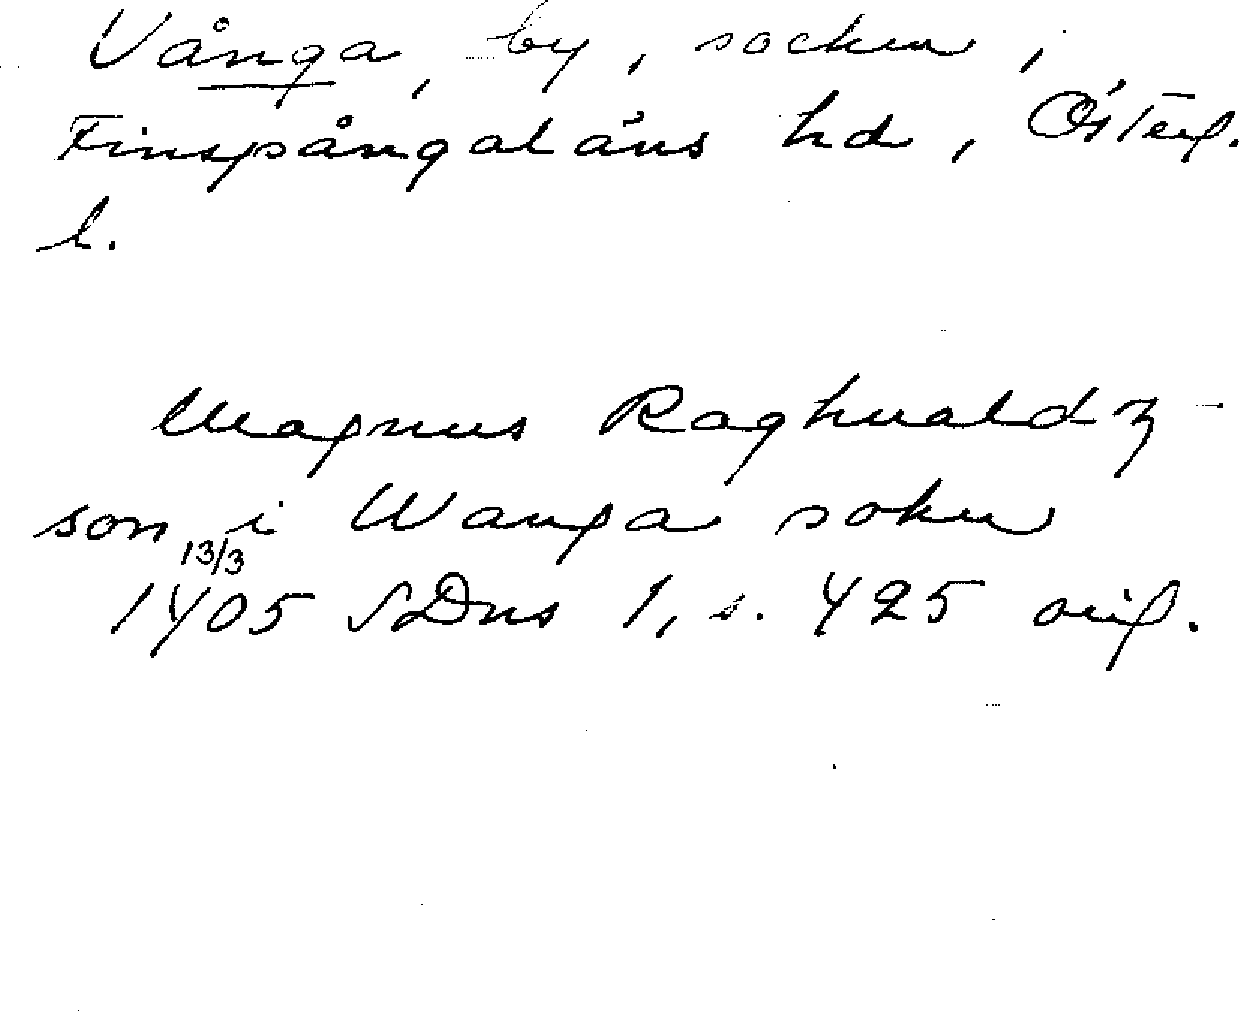 Vånga, by, socken,
Finspångaläns hd, Österg.
l.
Magnus Raghualdz-
son i Wanga soken
13/3
1405 SDns 1, s. 425 orig.